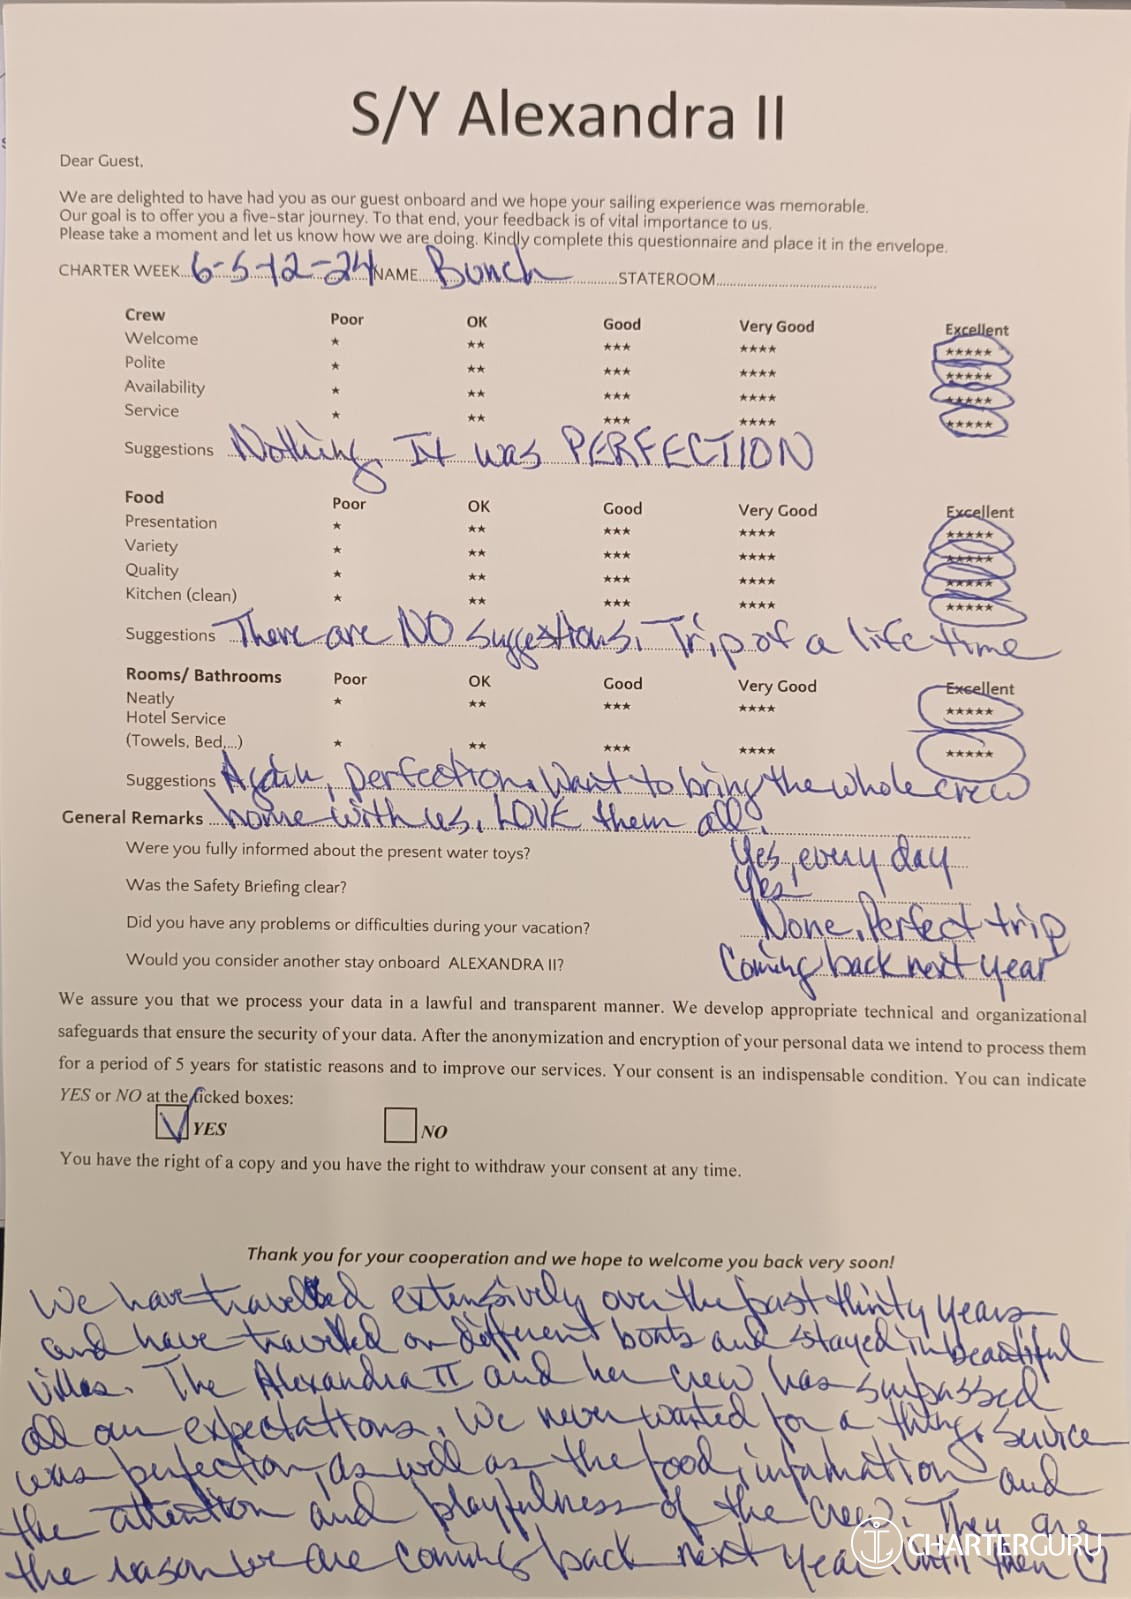 S/Y Alexandra II
Dear Guest,
We are delighted to have had you as our guest onboard and we hope your sailing experience was memorable.
Our goal is to offer you a five-star journey. To that end, your feedback is of vital importance to us.
Please take a moment and let us know how we are doing. Kindly complete this questionnaire and place it in the envelope.
CHARTER WEEK 6-5-12-24 NAME Bunch STATEROOM
Crew Poor OK Good Very Good Excellent
Welcome ★ ★★ ★★★ ★★★★ ★★★★★
Polite ★ ★★ ★★★ ★★★★ ★★★★★
Availability ★ ★★ ★★★ ★★★★ ★★★★★
Service ★ ★★ ★★★ ★★★★ ★★★★★
Suggestions Nothing. It was PERFECTION
Food Poor OK Good Very Good Excellent
Presentation ★ ★★ ★★★ ★★★★ ★★★★★
Variety ★ ★★ ★★★ ★★★★ ★★★★★
Quality ★ ★★ ★★★ ★★★★ ★★★★★
Kitchen (clean) ★ ★★ ★★★ ★★★★ ★★★★★
Suggestions There are NO suggestions. Trip of a life time
Rooms/ Bathrooms Poor OK Good Very Good Excellent
Neatly ★ ★★ ★★★ ★★★★ ★★★★★
Hotel Service
(Towels, Bed,...) ★ ★★ ★★★ ★★★★ ★★★★★
Suggestions Again, perfection. Want to bring the whole crew
General Remarks home with us. LOVE them all.
Were you fully informed about the present water toys? Yes, every day
Was the Safety Briefing clear? Yes!
Did you have any problems or difficulties during your vacation? None. Perfect trip
Would you consider another stay onboard ALEXANDRA II? Coming back next year
We assure you that we process your data in a lawful and transparent manner. We develop appropriate technical and organizational
safeguards that ensure the security of your data. After the anonymization and encryption of your personal data we intend to process them
for a period of 5 years for statistic reasons and to improve our services. Your consent is an indispensable condition. You can indicate
YES or NO at the ticked boxes:
YES NO
You have the right of a copy and you have the right to withdraw your consent at any time.
Thank you for your cooperation and we hope to welcome you back very soon!
We have travelled extensively over the past thirty years
and have travelled on different boats and stayed in beautiful
villas. The Alexandra II and her crew has surpassed
all our expectations. We never wanted for a thing. Service
was perfection, as well as the food, information and
the attention and playfulness of the crew. They are
the reason we are coming back next year. Until then
CHARTERGURU